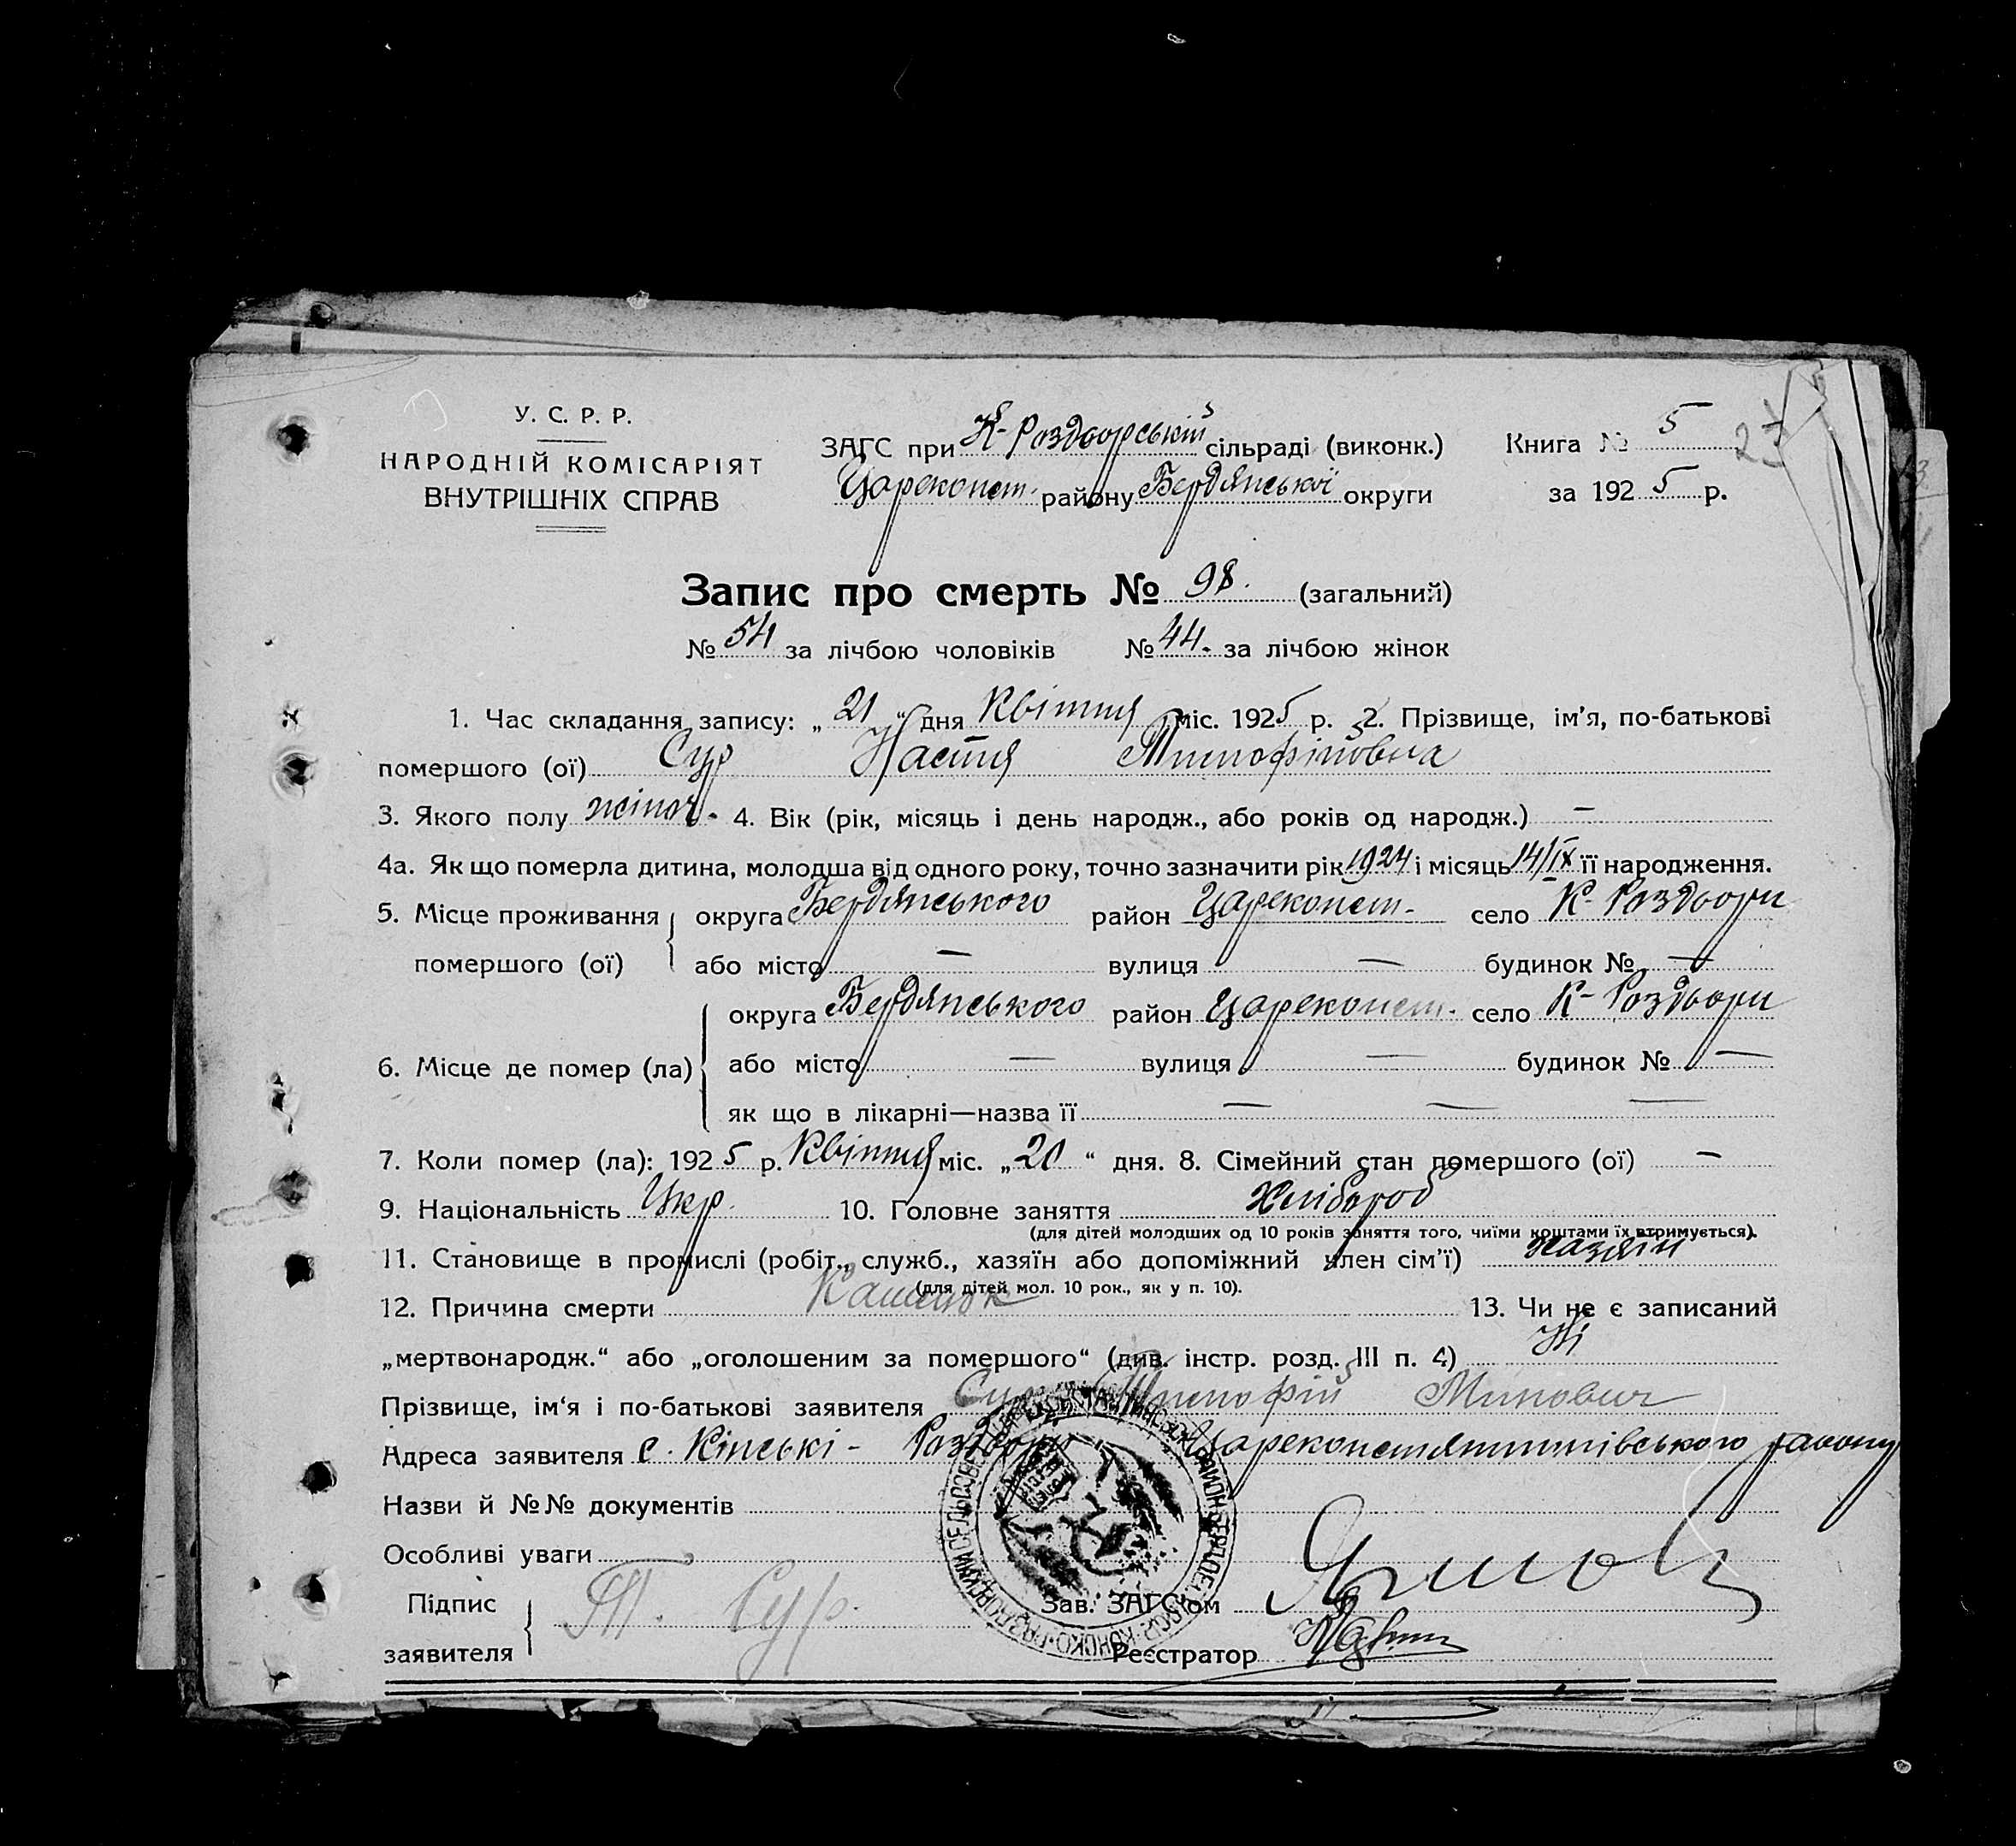 У. С. Р. Р.
НАРОДНІЙ КОМІСАРІЯТ
ВНУТРІШНІХ СПРАВ
ЗАГС при К-Роздорській сільраді (виконк.)
Цареконст. району Бердянської округи
Книга № 5
23
за 1925 р.
Запис про смерть № 98. (загальний)
№ 54 за лічбою чоловіків № 44. за лічбою жінок
1. Час складання запису: „21“ дня Квітня міс. 1925 р. 2. Прізвище, ім'я, по-батькові
помершого (ої) Сур Настя Тимофійовна
3. Якого полу жіноч. 4. Вік (рік, місяць і день народж., або років од народж.) —
4а. Як що померла дитина, молодша від одного року, точно зазначити рік 1924 і місяць 14/IX її народження.
5. Місце проживання помершого (ої) округа Бердянського район Цареконст. село К-Роздори
або місто — вулиця — будинок № —
6. Місце де помер (ла) округа Бердянського район Цареконст. село К-Роздори
або місто — вулиця — будинок № —
як що в лікарні—назва її — — —
7. Коли помер (ла): 1925 р. Квітня міс. „20“ дня. 8. Сімейний стан помершого (ої) —
9. Національність Укр. 10. Головне заняття Хлібороб
(для дітей молодших од 10 років заняття того, чиїми коштами їх втримується).
11. Становище в промислі (робіт., служб., хазяїн або допоміжний член сім'ї) Хазяїн
(для дітей мол. 10 рок., як у п. 10).
12. Причина смерти Кашлюк 13. Чи не є записаний
„мертвонародж.“ або „оголошеним за помершого“ (див. інстр. розд. III п. 4) Ні
Прізвище, ім'я і по-батькові заявителя Сур Тимофій Минович
Адреса заявителя с. Кінські-Роздори Цареконстянтинівського району
Назви й №№ документів
Особливі уваги
Підпис заявителя Т. Сур.
Зав. ЗАГС'ом
Реєстратор